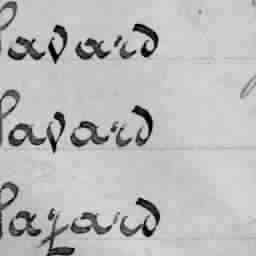 Savard
Savard
Sazard